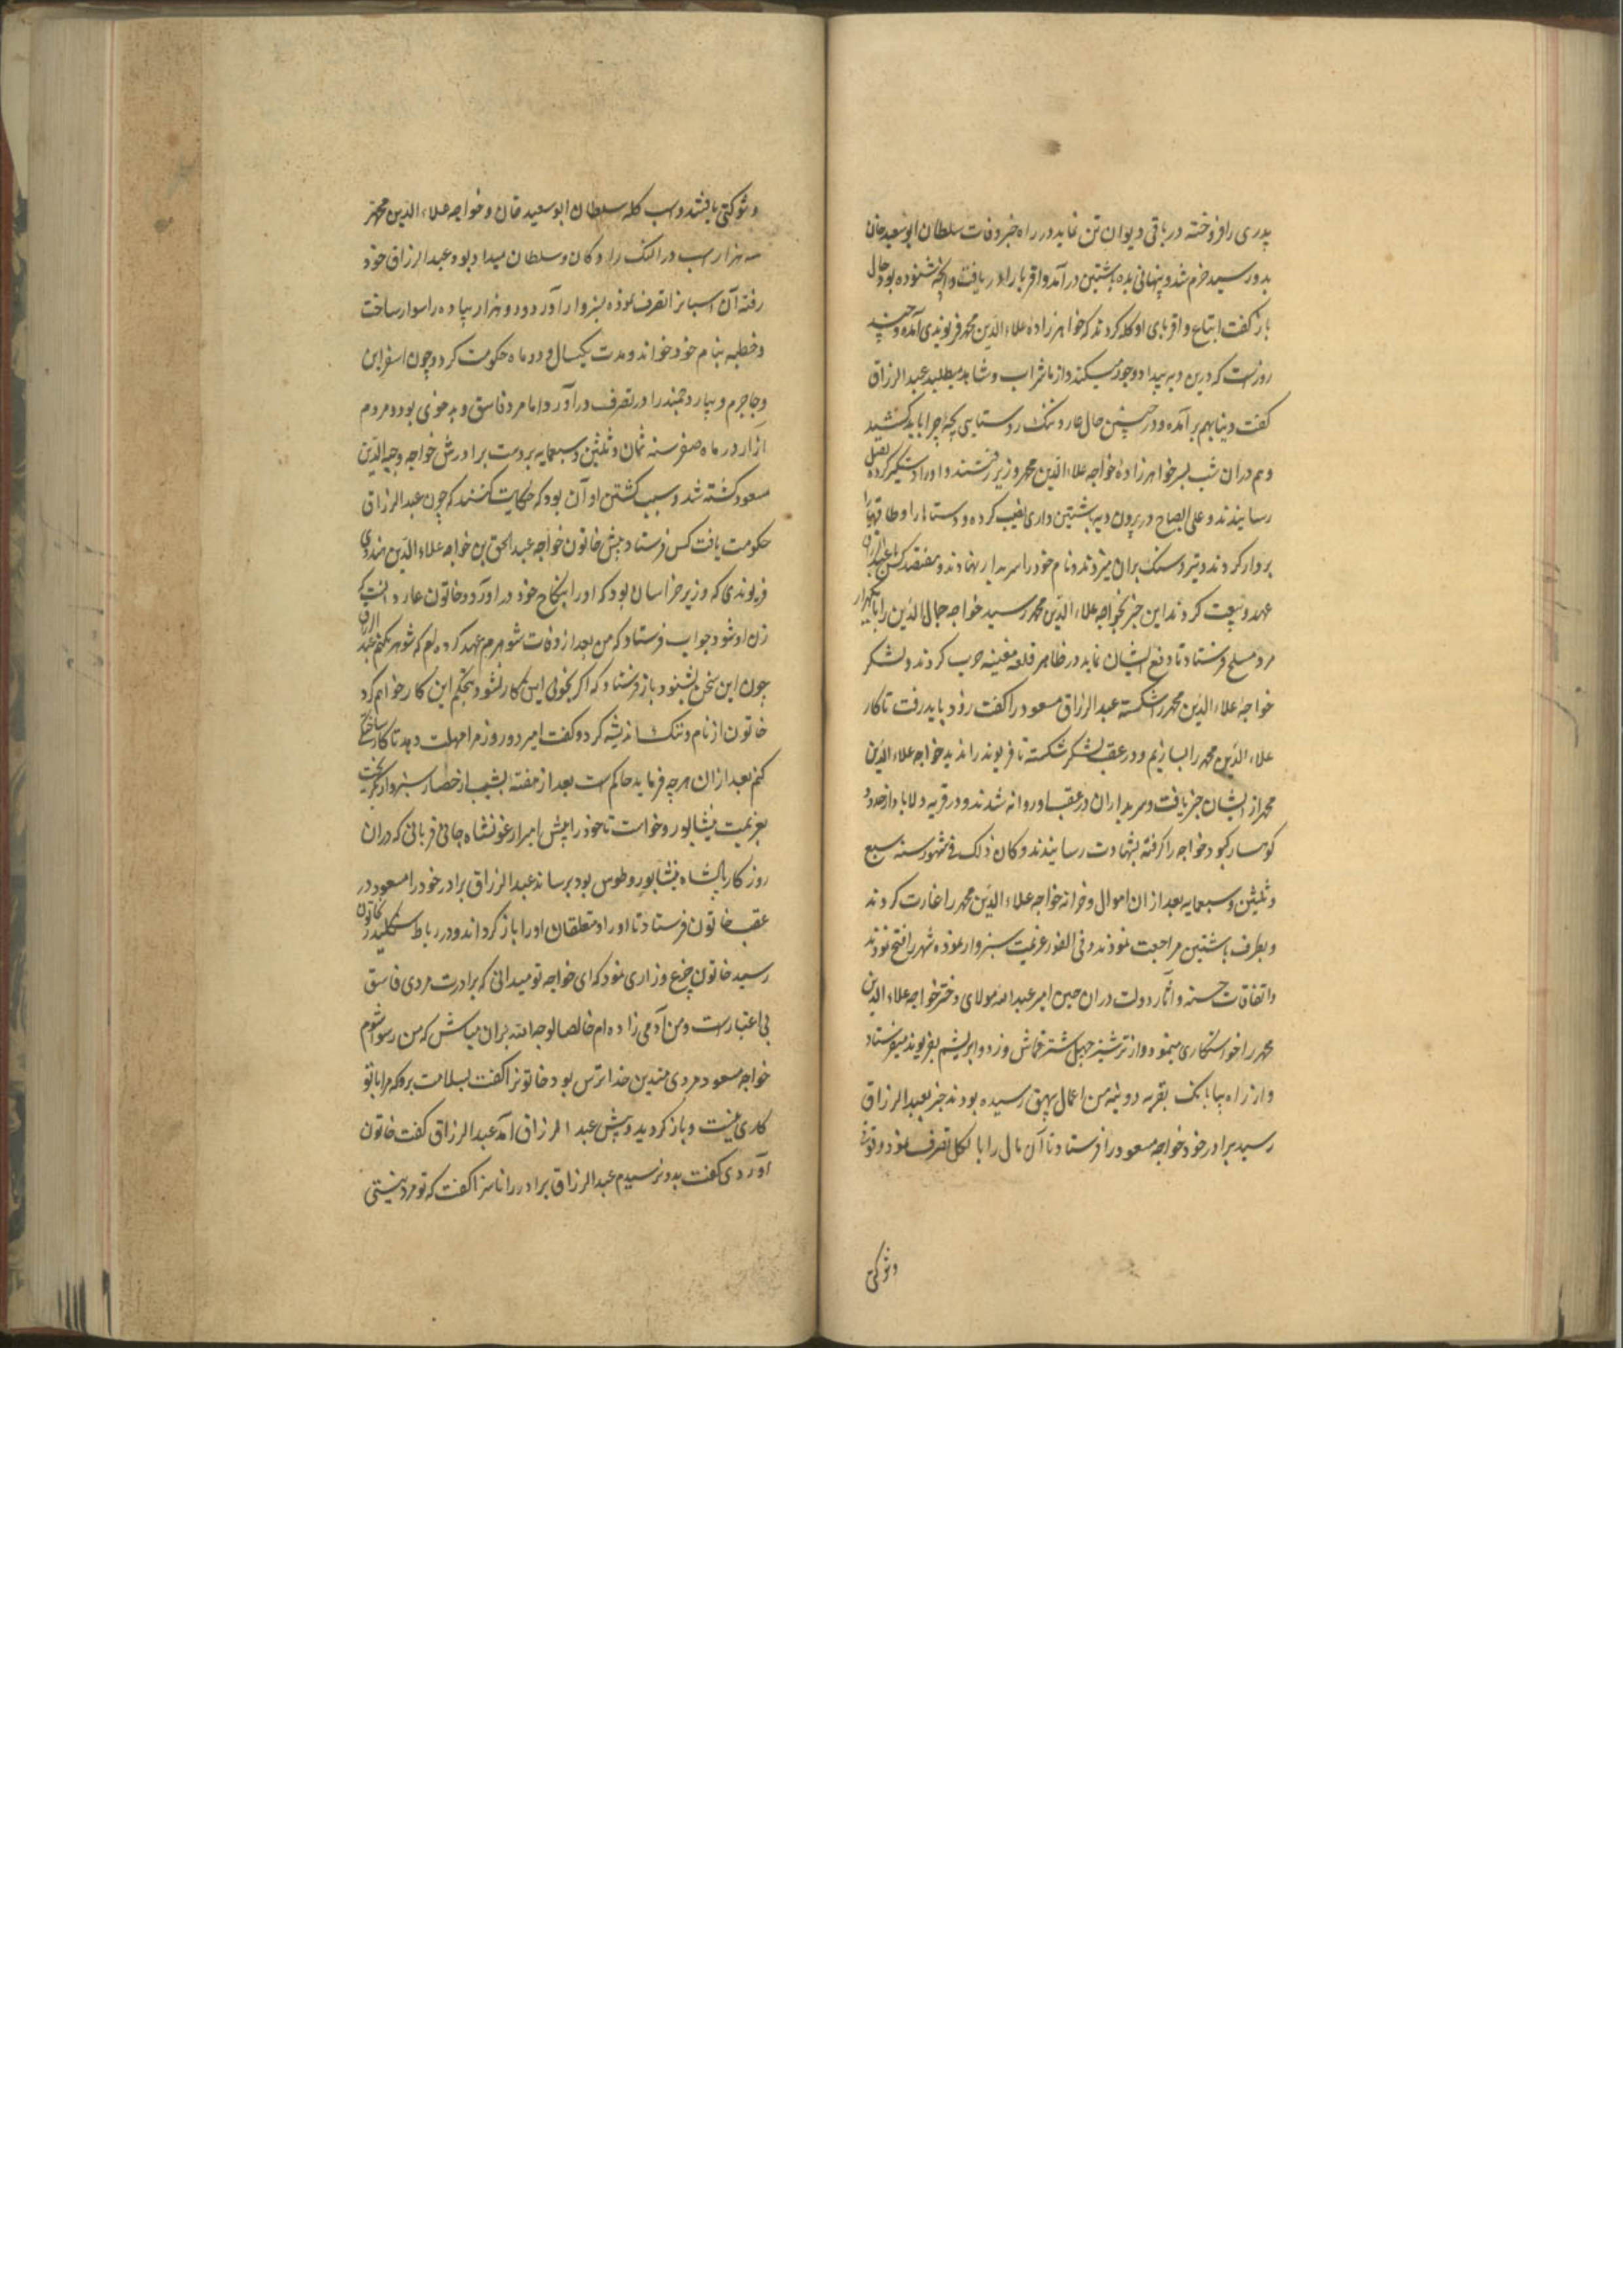 پدری را فروخته در باقی دیوان تن نماید در راه خبر وفات سلطان ابوسعید خان
بدو رسید خرم شد و پنهانی بده باشتین در آمد و اقربا را دریافت و آنچه شنوده بود حال
باز گفت اتباع و اقربای او گله کردند که خواهرزادهٔ علاء الدین محمد فریومدی آمده و چند
روزست که درین ده بیداد و جور میکند و از ما شراب و شاهد میطلبد عبد الرزاق
گفت دنیا بهم بر آمده و در چنین حال عار و ننک روستایی بچهٔ چرا باید کشید
و هم دران شب بسر خواهرزادهٔ خواجه علاء الدین محمد وزیر رفتند و او را دستگیر کرده بقتل
رسانیدند و علی الصباح در برون دیه باشتین داری نصب کرده و دستارها و طاقیها را
بر دار کردند و تیر و سنک بران میزدند و نام خود را سربدار نهادند و هفتصد کس با عبد الرزاق
عهد و بیعت کردند این خبر بخواجه علاء الدین محمد رسید خواجه جمال الدین را با یکهزار
مرد مسلح فرستاد تا دفع ایشان نماید در ظاهر قلعه مغیثه حرب کردند و لشکر
خواجه علاء الدین محمد را شکسته عبد الرزاق مسعود را گفت زود باید رفت تا کار
علاء الدین محمد را بسازیم و در عقب لشکر شکسته تا فریومد راندید خواجه علاء الدین
محمد از ایشان خبر یافت و سربداران در عقب او روانه شدند و در قریه ولاباد از حدود
کوهسار کبود خواجه را گرفته بشهادت رسانیدند و کان ذلک فی شهور سنه سبع
و ثلثین و سبعمایه بعد ازان اموال و خزانه خواجه علاء الدین محمد را غارت کردند
و بطرف باشتین مراجعت نمودند و فی الفور عزیمت سبزوار نموده شهر را فتح نمودند
و اتفاقات حسنه و آثار دولت دران حین امیر عبد الله مولای دختر خواجه علاء الدین
محمد را خواستکاری مینمود و از ترشیز چهل شتر قماش و زر و ابریشم بفریومد میفرستاد
و از راه بیابانک بقریه دوینه من اعمال بیهق رسیده بودند خبر بعبد الرزاق
رسید برادر خود خواجه مسعود را فرستاد تا آن مال را بالکل تصرف نمود و قوت
و شوکتی
و شوکتی یافتند و اسب گله سلطان ابوسعید خان و خواجه علاء الدین محمد
سه هزار اسب در النک رادکان و سلطان میدان بود و عبد الرزاق خود
رفته آن اسبانرا تصرف نموده بسبزوار آورد و دو هزار پیاده را سوار ساخت
و خطبه بنام خود خواند و مدت یکسال و دو ماه حکومت کرد و چون اسفراین
و جاجرم و بیار و خجند را در تصرف در آورد اما مرد فاسق و بدخوی بود و مردم
آزار در ماه صفر سنه ثمان و ثلثین و سبعمایه بر دست برادرش خواجه وجیه الدین
مسعود کشته شد و سبب کشتن او آن بود که حکایت کنند که چون عبد الرزاق
حکومت یافت کس فرستاد پیش خاتون خواجه عبد الحق بن خواجه علاء الدین هندوی
فریومدی که وزیر خراسان بود که او را بنکاح خود در آورد و خاتون عار داشت که
زن او شود جواب فرستاد که من بعد از وفات شوهرم عهد کرده ام که شوهر نکنم عبد الرزاق
چون این سخن بشنود باز فرستاد که اگر بخوشی این کار نشود بتحکم این کار خواهم کرد
خاتون از نام و ننک اندیشه کرد و گفت امیر دو روز مرا مهلت دهد تا کار ساختگی
کنم بعد ازان هر چه فرماید حاکم است بعد از هفته بشب از حصار سبزوار بگریخت
بعزیمت نیشاپور و خواست تا خود را پیش امیر ارغونشاه جانی قربانی که دران
روزگار پادشاه نیشابور و طوس بود برساند عبد الرزاق برادر خود را مسعود در
عقب خاتون فرستاد تا او را و متعلقان او را باز گرداند و در رباط سنکلیدر بخاتون
رسید خاتون جزع و زاری نمود که ای خواجه تو میدانی که برادرت مردی فاسق
بی اعتبار است و من آدمی زاده ام خالصا لوجه الله بران مباش که من رسوا شوم
خواجه مسعود مردی متدین خدا ترس بود خاتونرا گفت بسلامت برو که مرا با تو
کاری نیست و باز گردید و پیش عبد الرزاق آمد عبد الرزاق گفت خاتون
آوردی گفت بدو نرسیدم عبد الرزاق برادر را ناسزا گفت که تو مرد نیستی